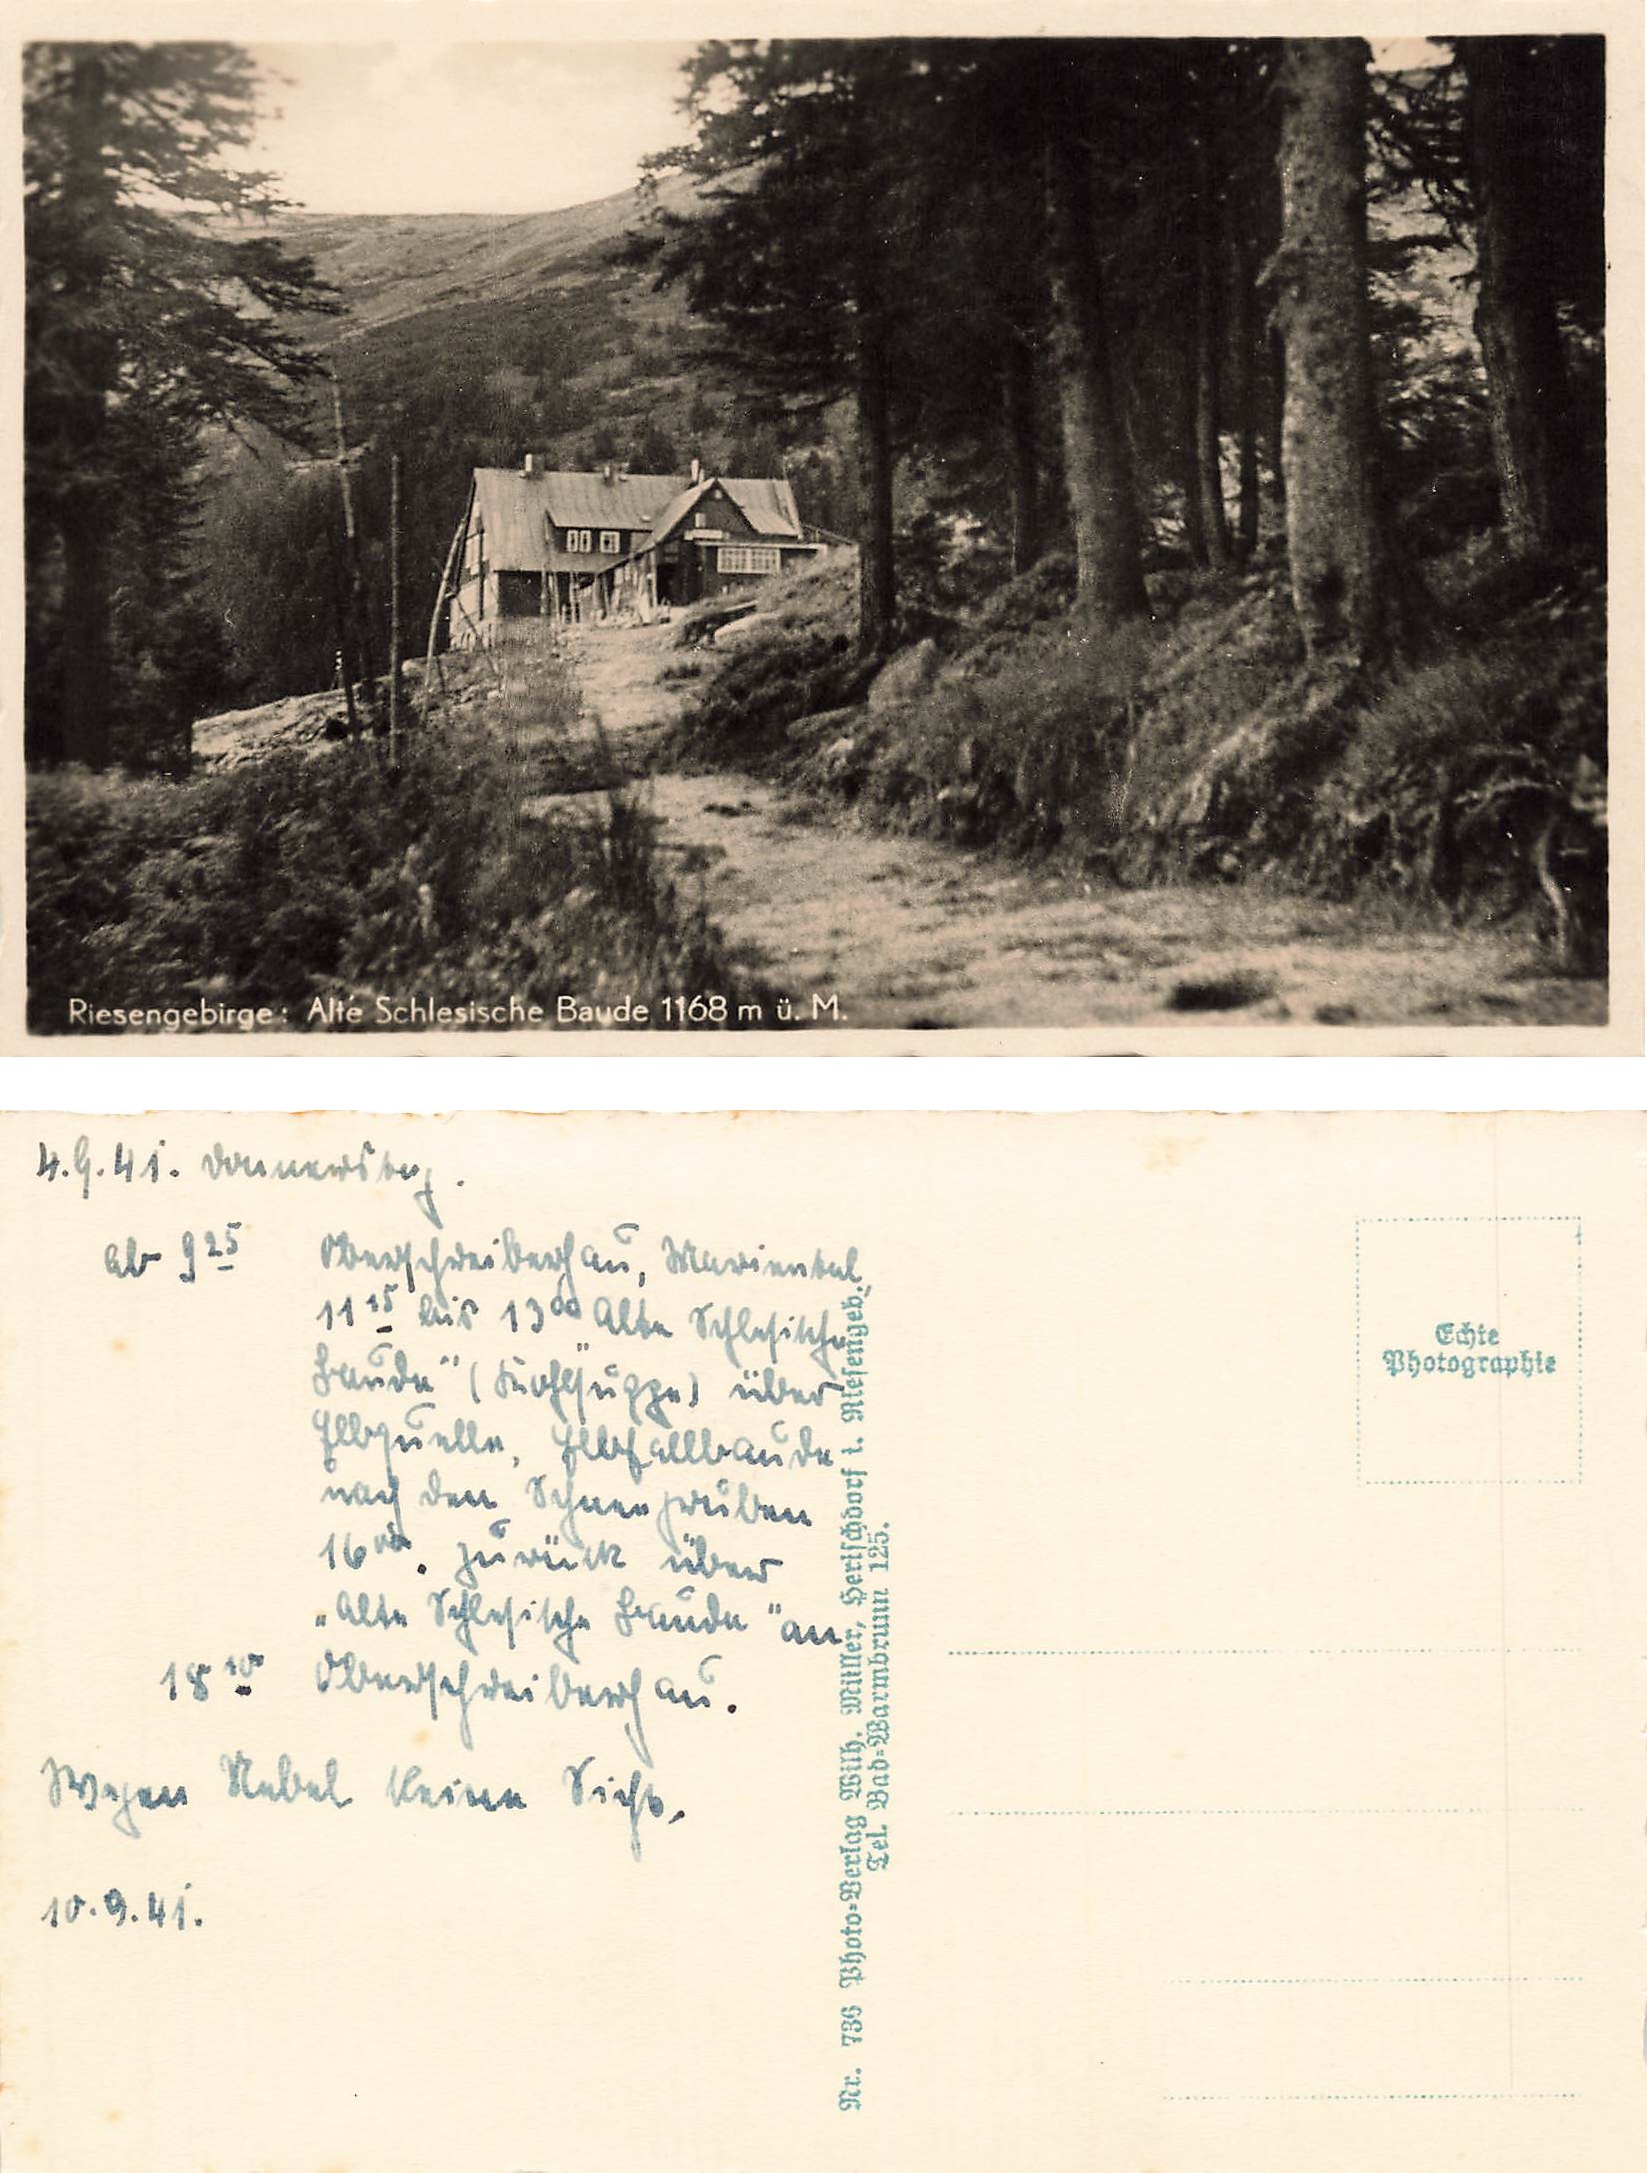 Riesengebirge: Alte Schlesische Baude 1168 m ü. M.
4.9.41. Donnerstag.
ab 9 25 Oberschreiberhau, Mariental,
11 15 bis 13 00 „Alte Schlesische
Baude" (Kohlsuppe) über
Elbquelle, Elbfallbaude
nach den Schneegruben
16 00. zurück über
„Alte Schlesische Baude" an
18 10 Oberschreiberhau.
Wegen Nebel keine Sicht.
10.9.41.
Nr. 736 Photo-Verlag Wilh. Miller, Herischdorf i. Riesengeb.
Tel. Bad-Warmbrunn 125.
Echte
Photographie